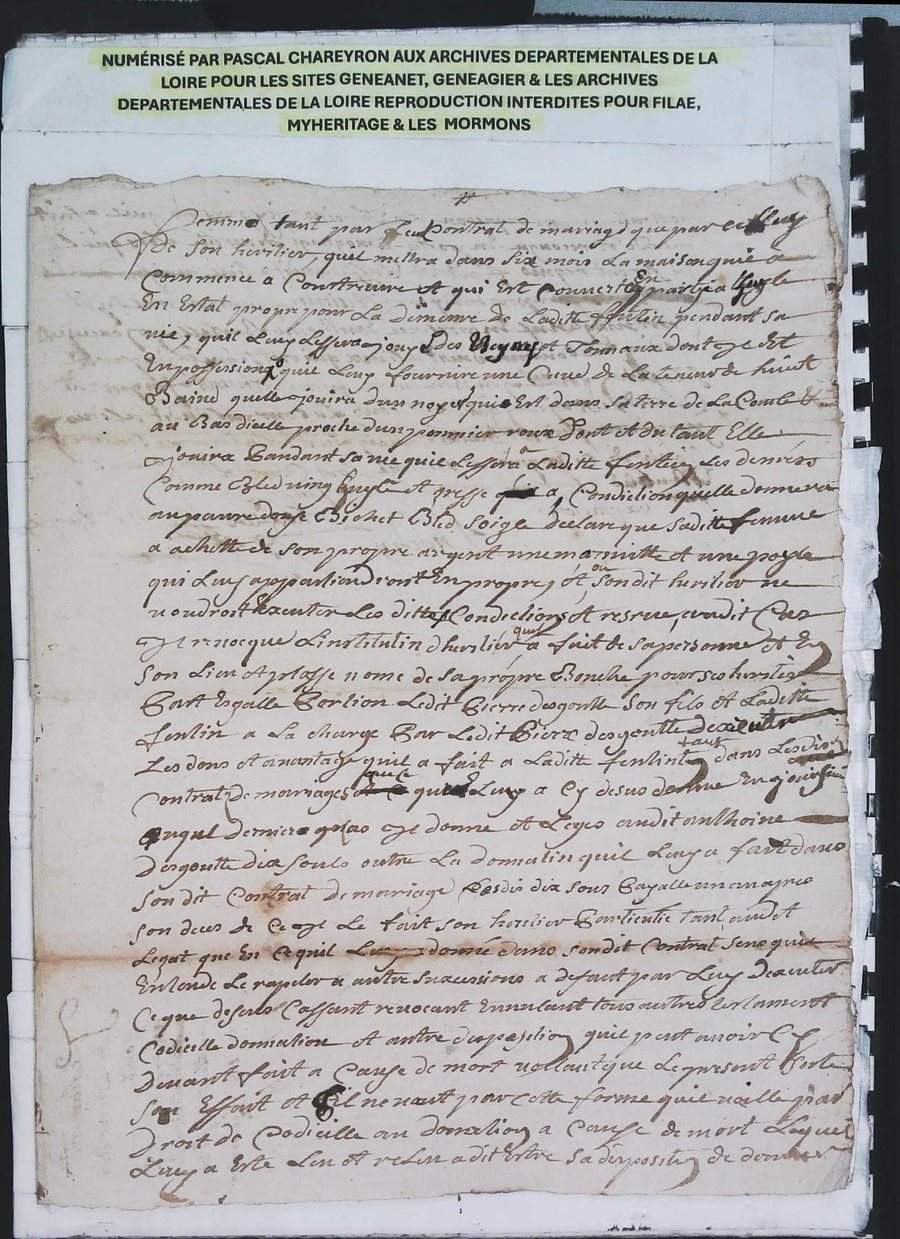 NUMÉRISÉ PAR PASCAL CHAREYRON AUX ARCHIVES DEPARTEMENTALES DE LA
LOIRE POUR LES SITES GENEANET, GENEAGIER & LES ARCHIVES
DEPARTEMENTALES DE LA LOIRE REPRODUCTION INTERDITES POUR FILAE,
MYHERITAGE & LES MORMONS
femme tant par contrat de mariage que par celluy
De son heritier, quil mettra dans six mois la maison quil a
Commence a Construire et qui est couverte En partye a
En Estat propre pour La demeure de Laditte fenlin pendant sa
vie, quil Luy Lessera jouyr des et Tonnaux dont Il Est
En possession quil Luy fournire une Cuve de La teneur de huict
quelle jouira dun noyer qui Est dans sa terre de La Combe
au Bas dicelle proche dun pommier roux dont Et du tant Elle
jouira Pandant sa vie quil Lessera a Laditte fenlin Les denrés
Comme Bled ving et gresse a Condiction quelle donnera
au pauvre douse Bichet Bled soigle declare que sa ditte femme
a achetté de son propre argent une marmitte et une poyle
qui Luy appartiendront En propre, et ou son dit heritier ne
voudroit Executer Les dittes Condictions et reserve, audit Cas
Je revocque Linstitutin dheritier quil a fait de sa personne Et En
son Lieu et plasse nome de sa propre Bouche pour ses heritiers
Part Egalle Portion Ledit Pierre desgoutte son fils et Laditte
fenlin a La charge Par Ledit Pierre desgoutte Dexecuter
Les dons et avantage quil a fait a Laditte fenlin tant dans Lesdis
Contrat de mariages que ce quil Luy a Cy desus donne En
Auquel dernier Cas Je donne et Legue audit anthoine
Desgoutte dix souls outre La donnatin quil Luy a fait dans
son dit Contrat de mariage Lesdis dix sous Payalle un an apres
son deces de Ce Je Le fait son heritier Particulie tant audit
Legat que En Ce quil Luy a donné dans son dit Contrat sens quil
Entende Le rapeler a autre sucessions a defaut par Luy Dexecuter
Ce que desus Cassant revocant Ennulant tous autres testament
Codicille donnation et autre disposition quil peut avoir Cy
Devant fait a Cause de mort voullant que Le present sorte
son Effait et sil ne vaut par cette forme quil vaille par
Droit de Codicille ou donation a Cause de mort Lequel
Luy a Este Leu et releu a dit Estre sa disposition de derniere